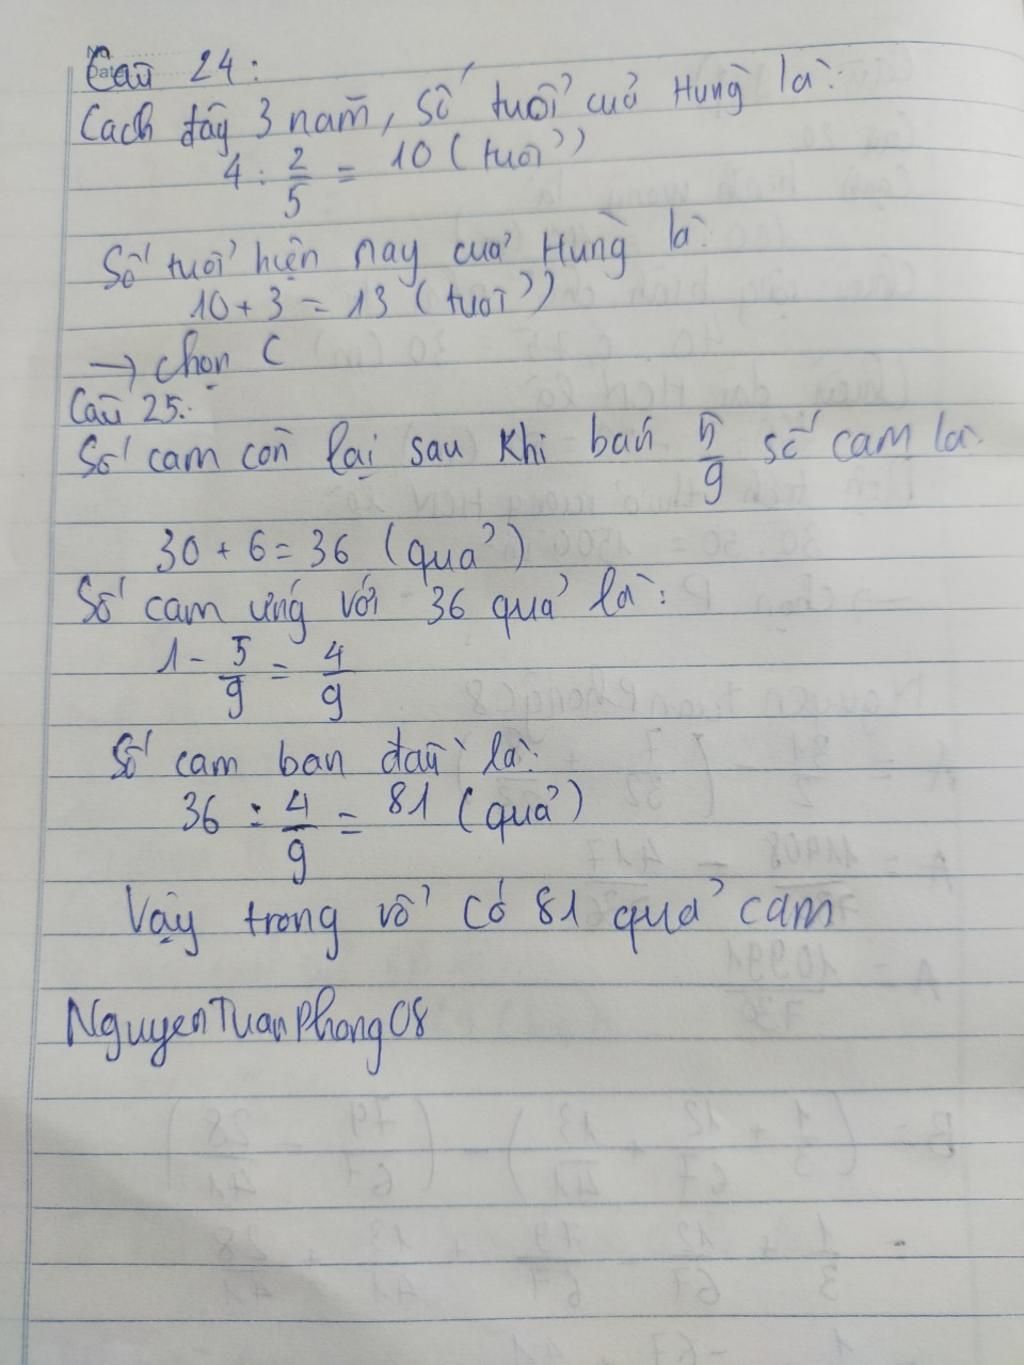 No.
Date
Câu 24:
Cách đây 3 năm, số tuổi của Hùng là:
4 : 2/5 = 10 (tuổi)
Số tuổi hiện nay của Hùng là:
10 + 3 = 13 (tuổi)
→ chọn C
Câu 25:
Số cam còn lại sau khi bán 5/9 số cam là:
30 + 6 = 36 (quả)
Số cam ứng với 36 quả là:
1 - 5/9 = 4/9
Số cam ban đầu là:
36 : 4/9 = 81 (quả)
Vậy trong rổ có 81 quả cam
NguyenTuanPhong08